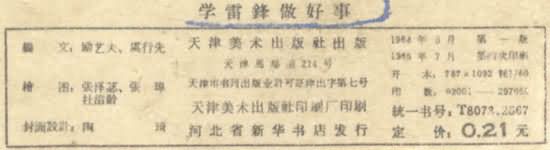 学雷鋒做好事
編 文：励艺夫、虞行先
繪 图：张泽苾、张
杜滋齡
封面設計：陶 琦
天津美术出版社出版
天津馬場道214号
天津市书刊出版业許可証津出字第七号
天津美术出版社印刷厂印刷
河北省新华书店发行
196 年 月 第一版
196 年7月 印刷
开 本：787×1092 1/60
印 数：
統一书号：T8073.2567
定 价：0.21元